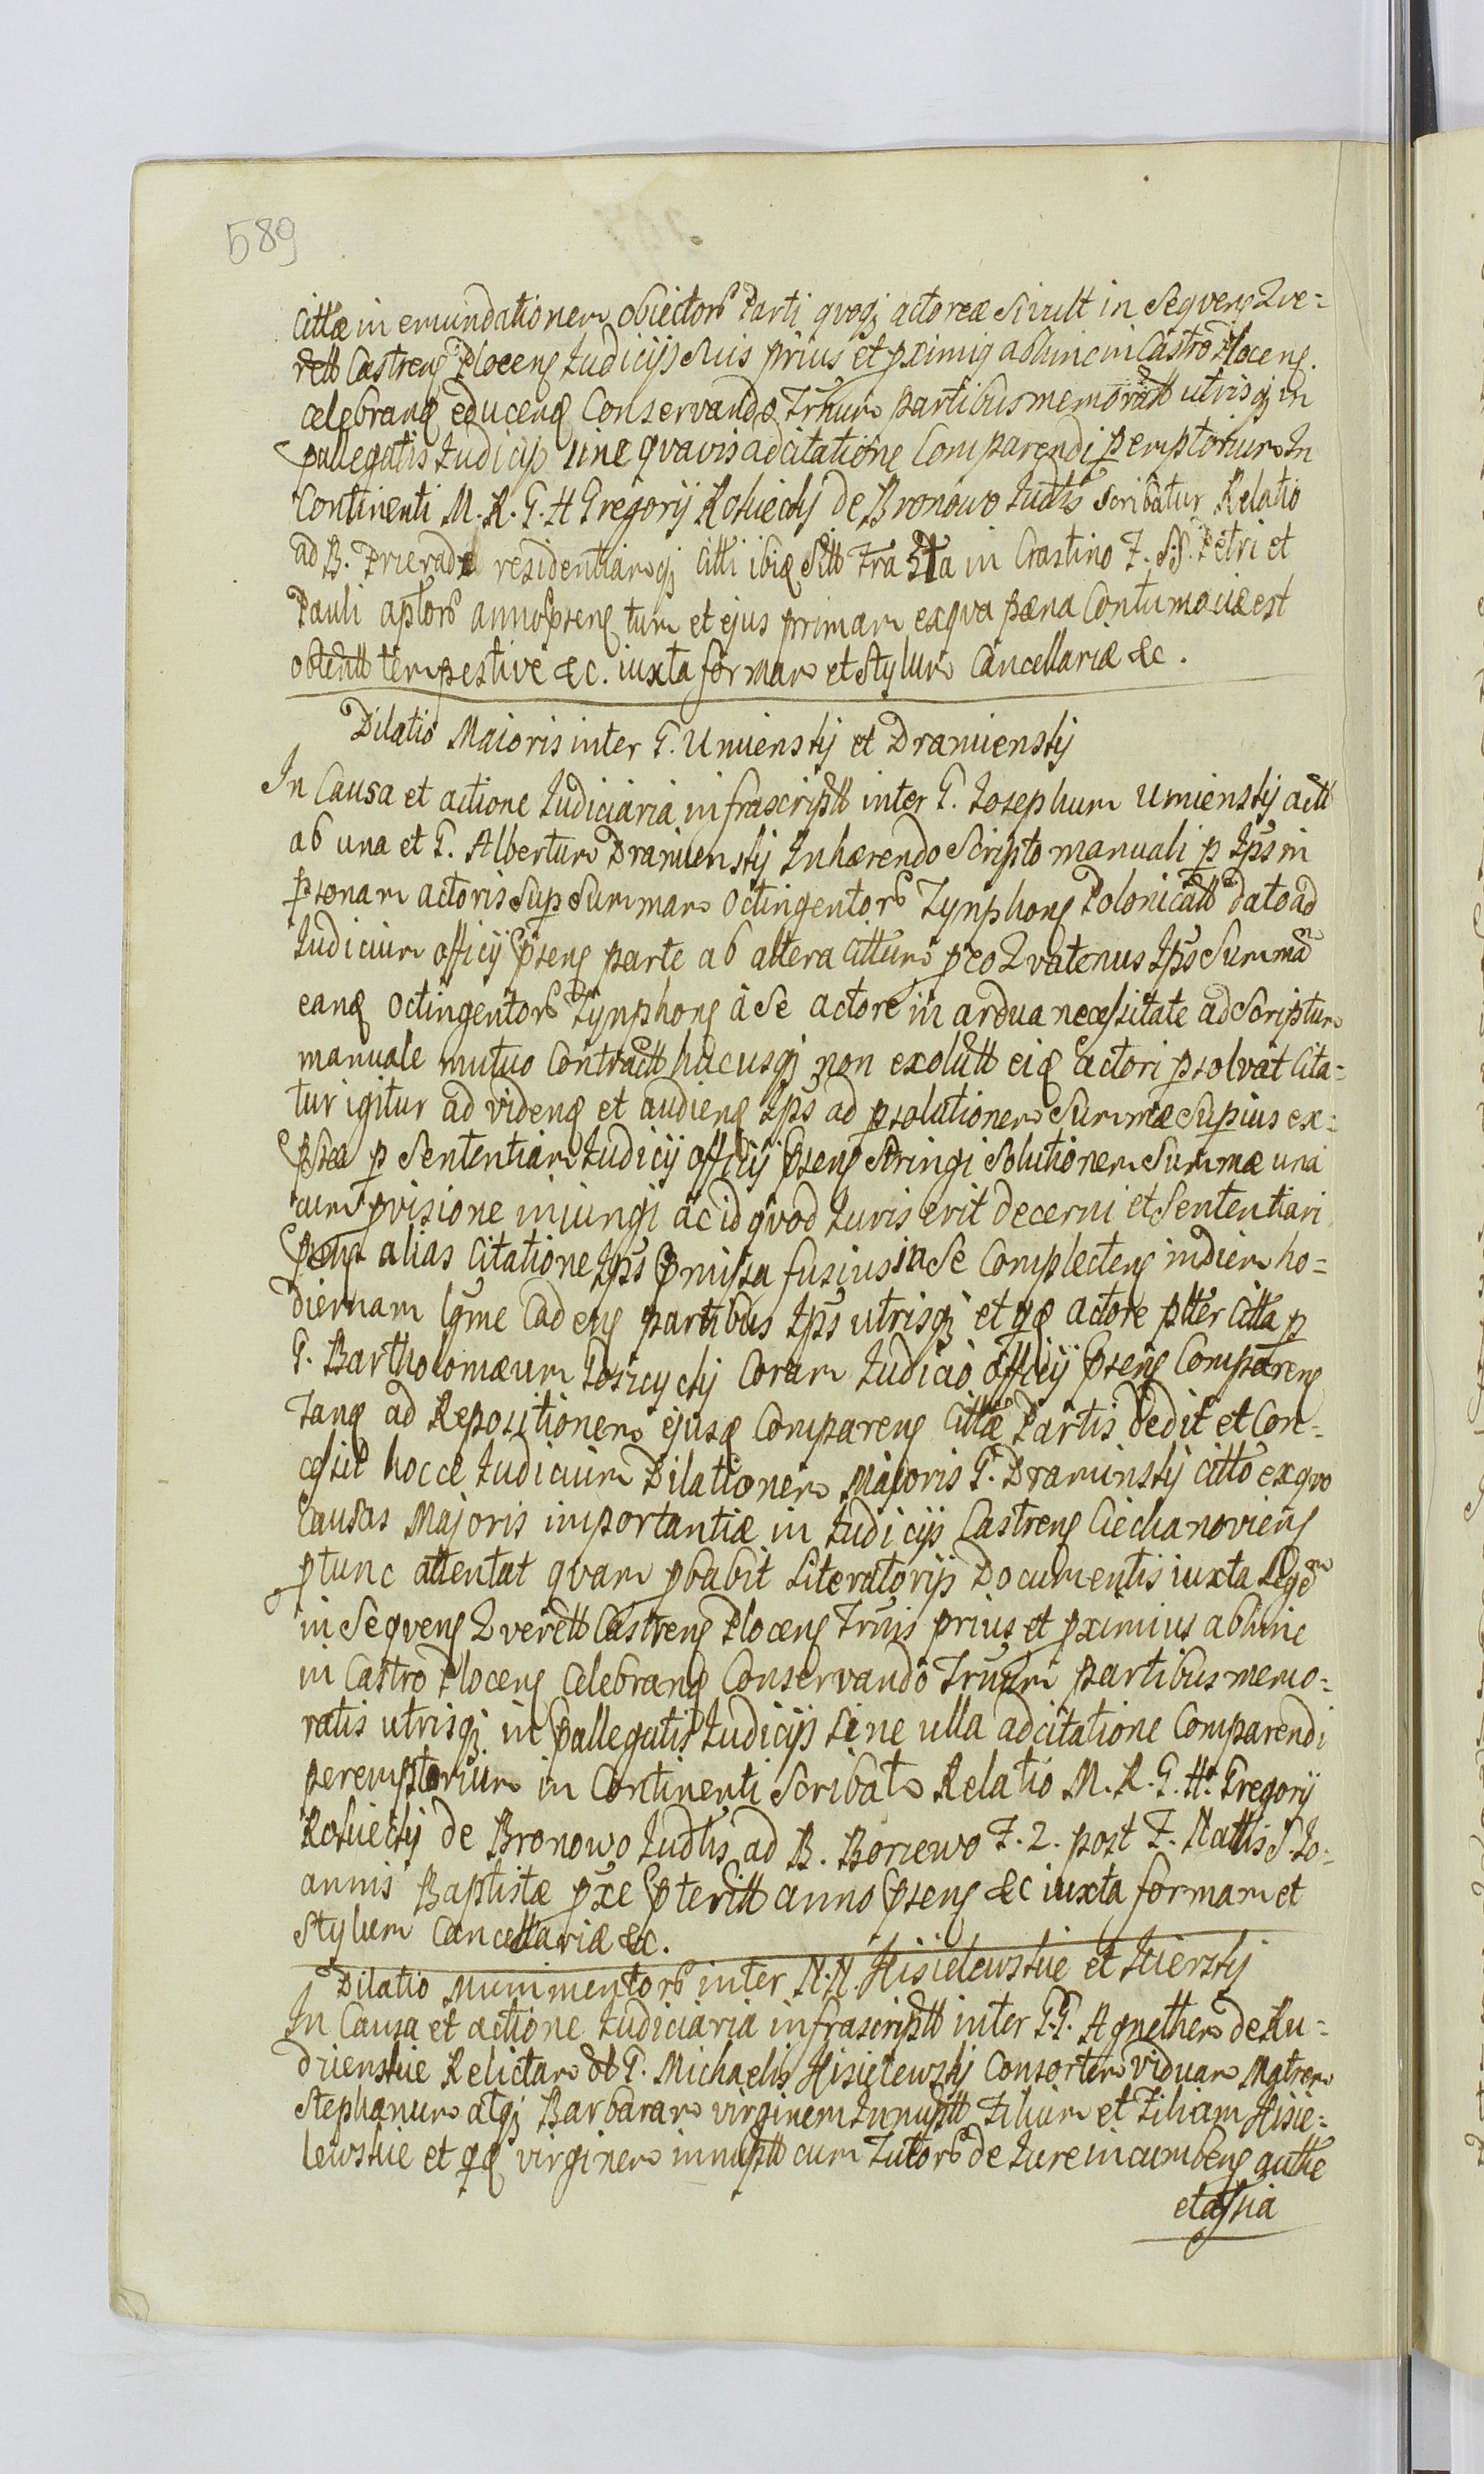 589
Cittæ in emundationem obiectorũ Parti qvoqȝ actoreæ Sivult in Seqvenς Qve=
rell Castrenς Plocenς Judicijs suis prius et pximiς abhinc in Castro Plocenς
celebranς educenς Conservando Trñum partibus memoratt utrisqȝ in
pallegatis Judicijs sine qvavis adcitatione Comparendi pemptorium In
Continenti M. R. G. H Gregorij de Bronowo scribatur Relatio
ad B. residentiamqȝ Citti ibiς Sitt Fra 5ta in Crastino F. S.S. Petri et
Pauli aptorũ anno pñsenς tum et ejus primam exqva pæna Contumaciæ est
obtentt tempestive &c. iuxta formam et Stylum Cancellariæ &c.
Dilatio Maioris inter G. Umienskij et Dramienskij
In Causa et actione Judiciaria infrascriptt inter G. Josephum Umienskij actt
ab una et G. Albertum Dramienskij Inhærendo Scripto manuali p Jps̃ in
psonam actoris Sup Summam Octingentorũ Tynphonς Polonicatt dato ad
Judicium officij pñsenς parte ab altera Cittum peo Qvatenus Jps̃ Summã
eanς octingentorũ Tynphonς à Se actore in ardua necessitate ad Scriptum
manuale mutuo Contractt hucusqȝ non exolutt eiς actori psolvat Cita=
tur igitur ad videnς et audienς Jps̃ ad psolutionem Summæ Supius ex=
pssæ p Sententiam Judicij officij pñsenς Stringi Solutionem Summæ una
cum pvisione injungi ac id qvod Juris erit decerni et Sententiari
alias Citatione Jps̃ pmissa fusius in Se Complectenς indiem ho=
diernam lgme Cadenς partibus Jps̃ utrisqȝ et qς actore pltter Citta p
G. Bartholomæum Coram Judicio officij pñsenς Comparenς
Tanς ad Repositionem ejusς Comparenς Cittæ Partis Dedit et Con=
cessit hocce Judicium Dilationem Majoris G. Draminskij Citto exqvo
Causas Majoris importantiæ in Judicijs Castrenς Ciechanovienς
ptunc attentat qvam pbabit Literatorijs Documentis iuxta Legẽ
in Seqvenς Qverell Castrenς Plocenς Trñis prius et pximius abhinc
in Castro Plocenς Celebranς Conservando Trñum partibus memo=
ratis utrisqȝ in pallegatis Judicijs Sine ulla adcitatione Comparendi
peremptorium in Continenti Scribat Relatio M. R. G. H. Gregorij
de Bronowo ad B. Borzewo F. 2. post F. Nattis S. Jo=
annis Baptistæ pxe pteritt anno pñsenς &c iuxta formam et
Stylum Cancellariæ &c.
Dilatio Munimentorũ inter N.N. Kisielewskie et
In Causa et actione Judiciaria infrascriptt inter G.G. Agnethem de Ru=
dzienskie Relictam olt G. Michaelis Kisielewskij Consortem Viduam Matrem
Stephanum atqȝ Barbaram virginem Innuptt Filium et Filiam Kisie=
lewskie et qς virginem innuptt cum Tutorũ de Jure incumbenς authe
et assia